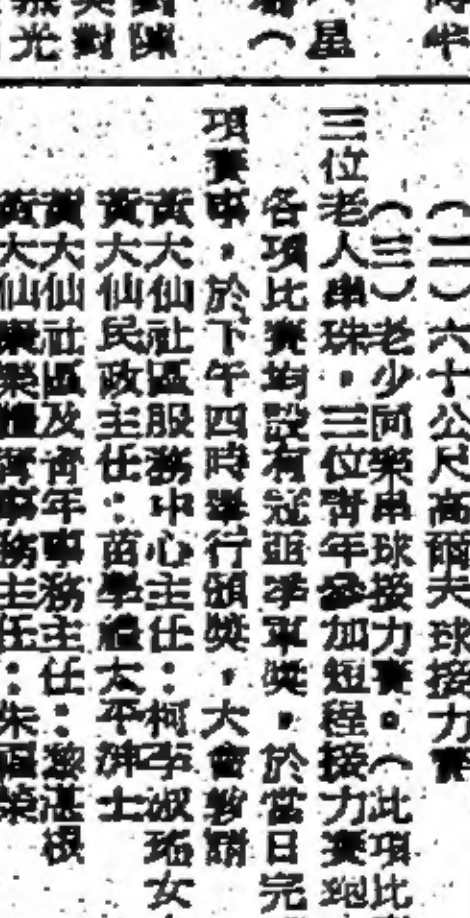 時牛
星
者（
對陳
英對
燕光
（二）六十公尺高爾夫球接力賽
（三）老少同樂串球接力賽。（此項比
三位老人串珠，三位青年參加短程接力賽跑
各項比賽均設有冠亞季軍獎。於當日完
項賽事，於下午四時舉行頒獎，大會敦請
黃大仙社區服務中心主任：柯李淑瑤女
黃大仙民政主任：苗學禮太平紳士
黃大仙社區及青年事務主任：黎湛根
黃大仙康樂體育事務主任：朱福榮